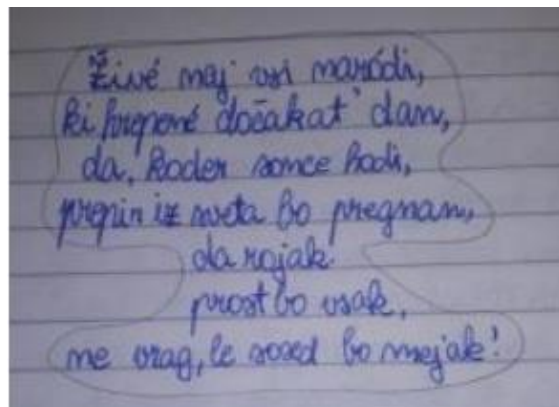 Živé naj vsi naródi,
ki hrepené dočakat' dan,
da, koder sonce hodi,
prepir iz sveta bo pregnan,
da rojak
prost bo vsak,
ne vrag, le sosed bo mejak!